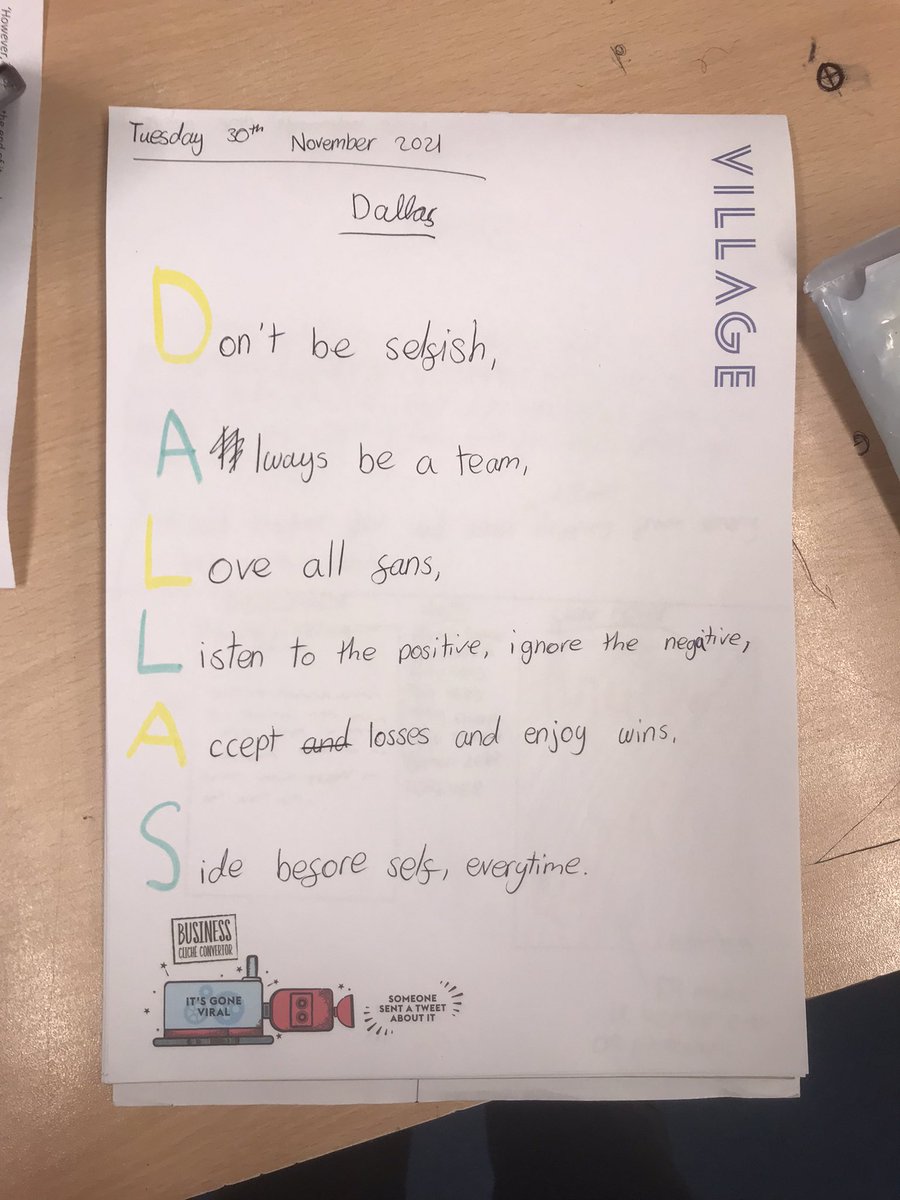 Tuesday 30th November 2021
Dallas
VILLAGE
Don't be selfish,
Always be a team,
Love all fans,
Listen to the positive, ignore the negative,
Accept and losses and enjoy wins.
Side before self, everytime.
BUSINESS
CLICHÉ CONVERTOR
IT'S GONE
VIRAL
SOMEONE
SENT A TWEET
ABOUT IT
'However,